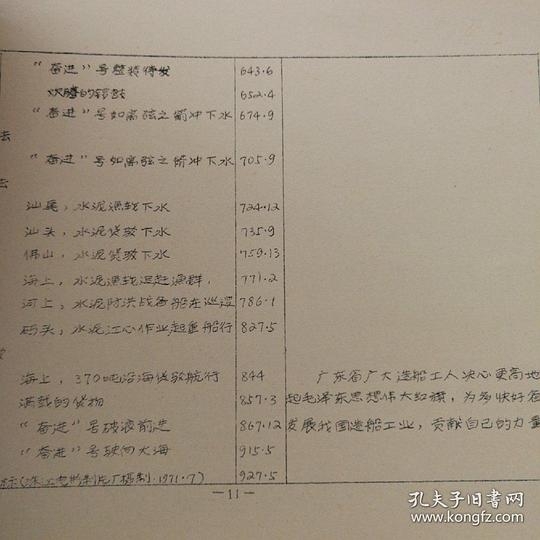 “奋进”号整装待发 643.6
欢腾的锣鼓 652.4
“奋进”号如离弦之箭冲下水 674.9
去
“奋进”号如离弦之箭冲下水 705.9
去
汕尾，水泥渔轮下水 724.12
汕头，水泥货驳下水 735.9
佛山，水泥货驳下水 759.13
海上，水泥渔轮追赶渔群， 771.2
河上，水泥防洪战备船在巡逻 786.1
码头，水泥江心作业起重船行 827.5
海上，370吨沿海货驳航行 844 广东省广大造船工人决心更高地
满载的货物 857.3 起毛泽东思想伟大红旗，为多快好省
“奋进”号破浪前进 867.12 发展我国造船工业，贡献自己的力量
“奋进”号驶向大海 915.5
（珠江电影制片厂摄制.1971.7） 927.5
—11—
孔夫子旧书网
www.kongfz.com